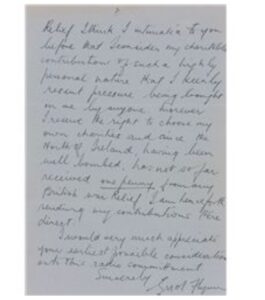 Relief I think I intimated to you
before that I consider my charitable
contributions of such a highly
personal nature that I keenly
resent pressure being brought
on me by anyone. However
I reserve the right to choose my
own charities and since the
North of Ireland, having been
well bombed, has not so far
received one penny from any
British war relief I am henceforth
sending my contributions there
direct.
I would very much appreciate
your earliest possible consideration
onto this radio commitment
Sincerely
Errol Flynn